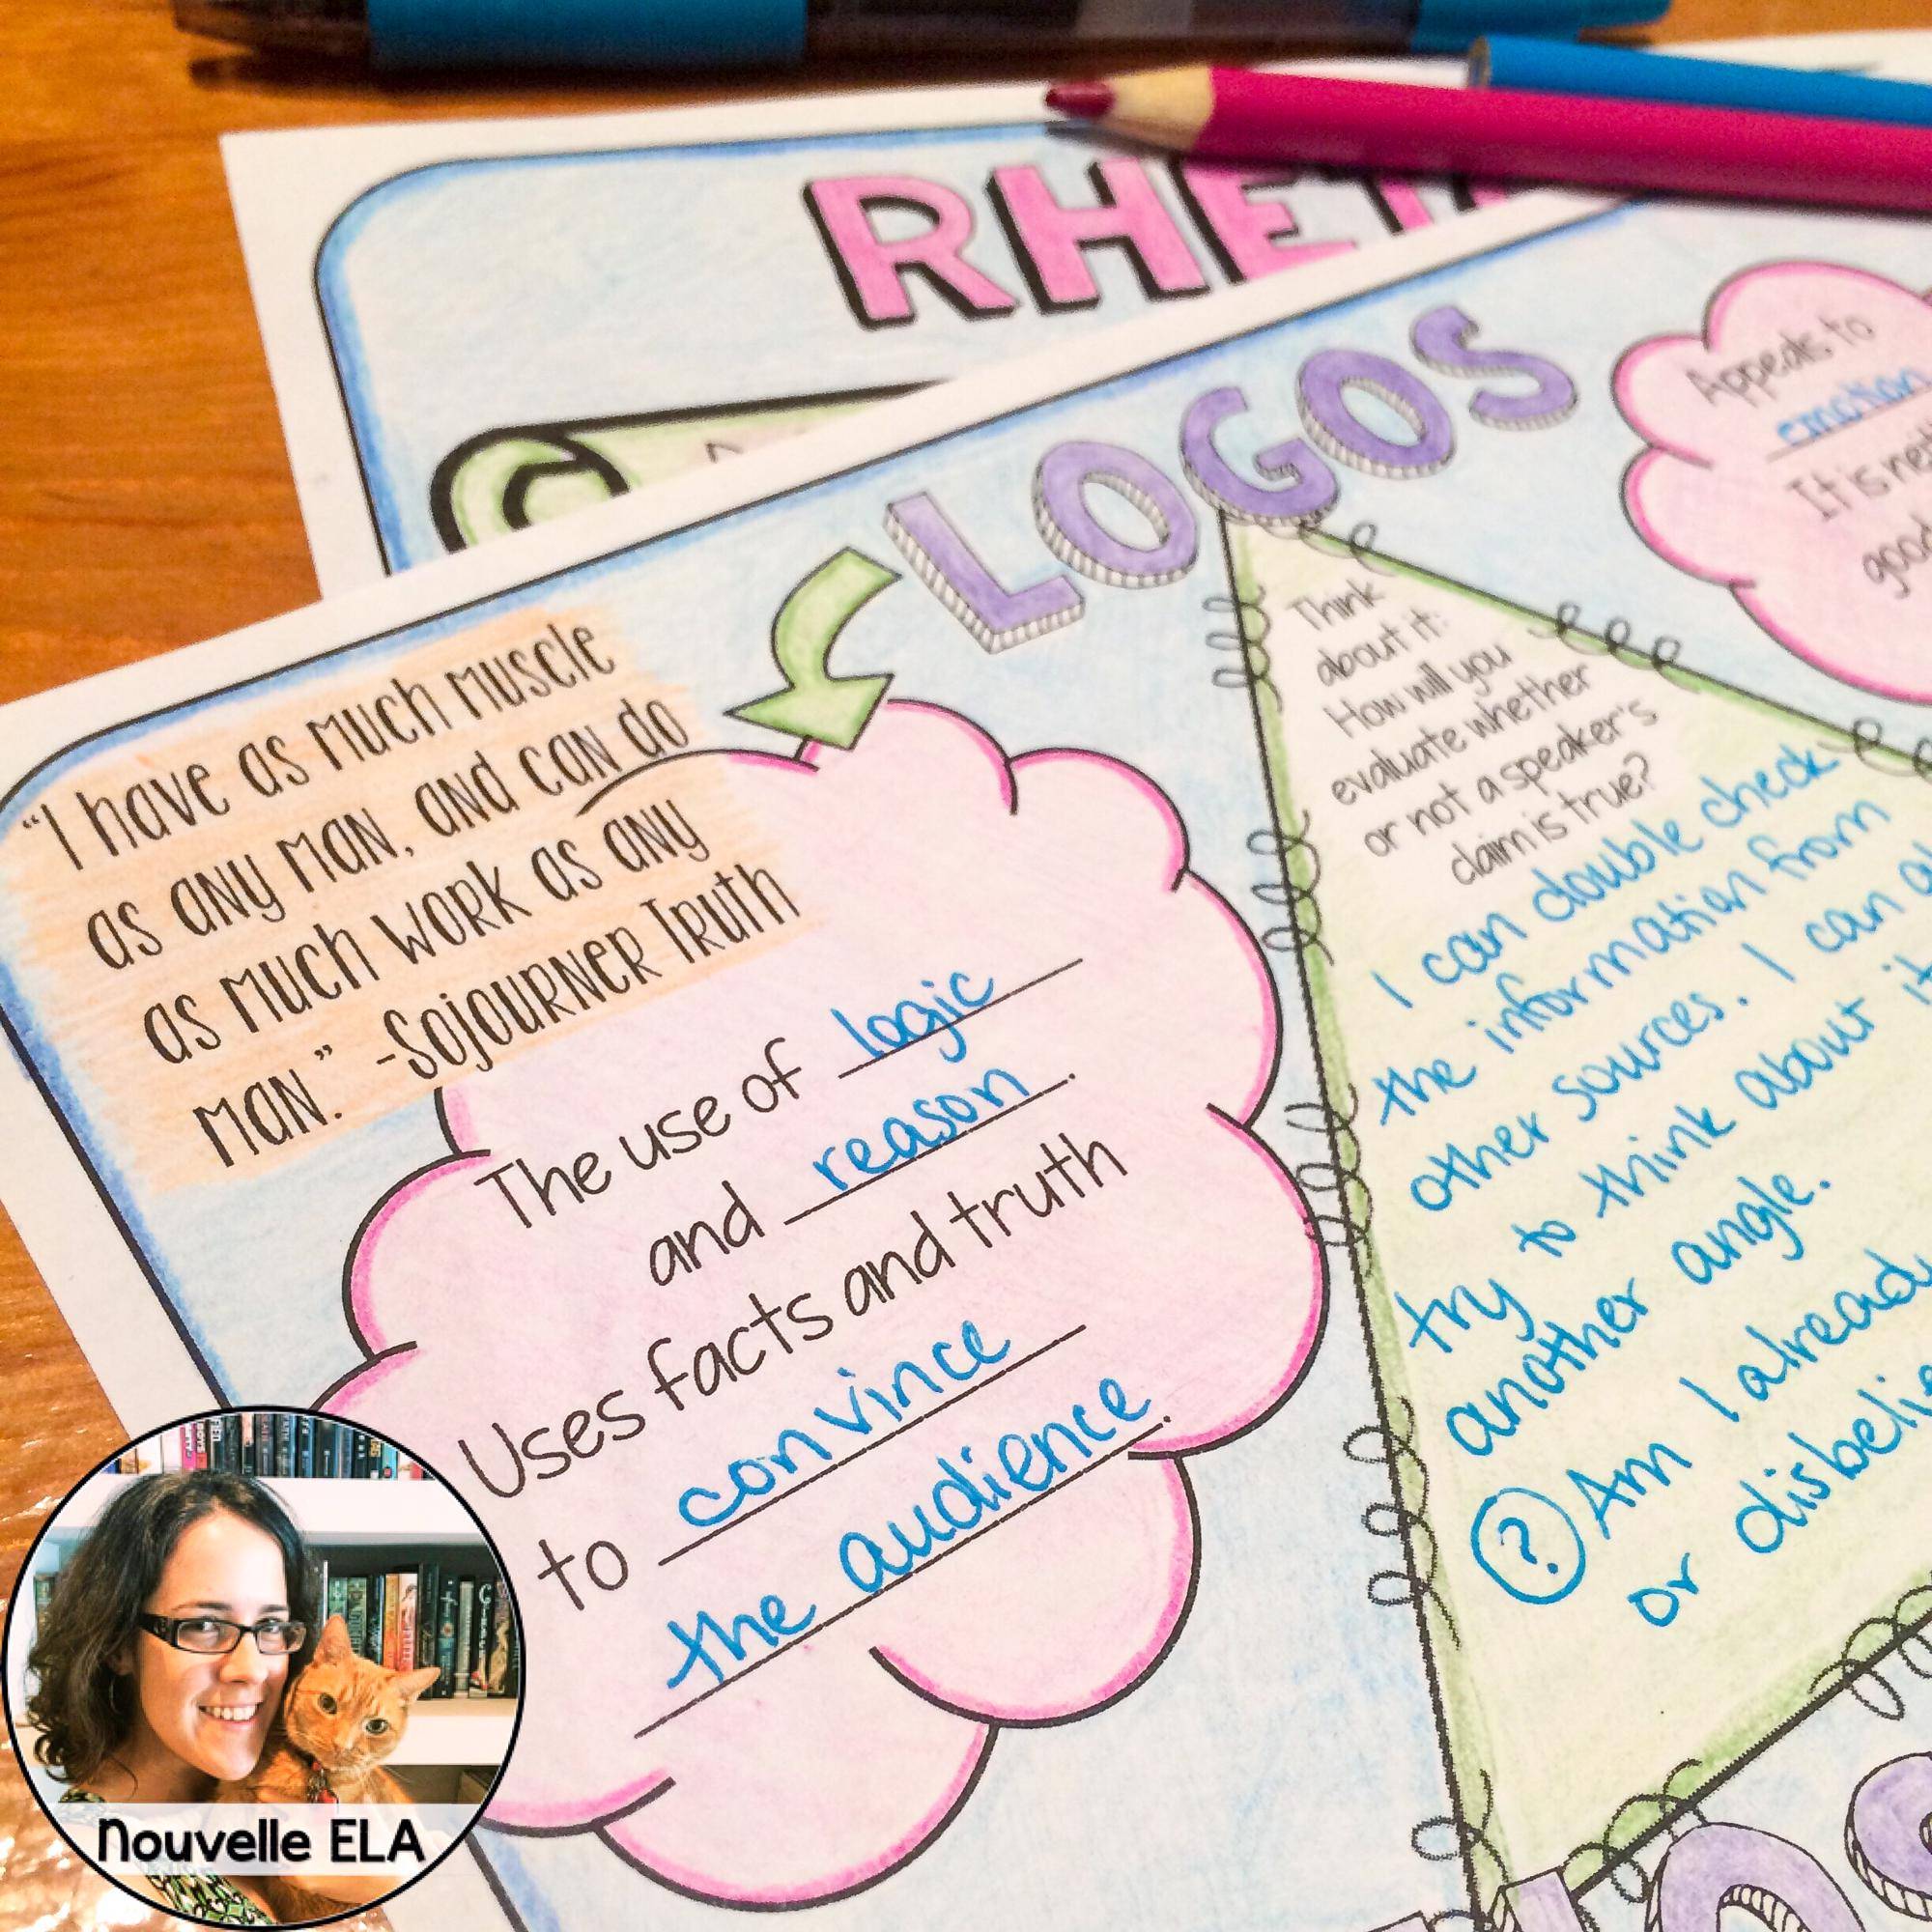 LOGOS
"I have as much muscle
as any man, and can do
as much work as any
man." -Sojourner Truth
The use of logic
and reason.
Uses facts and truth
to convince
the audience.
Think
about it:
How will you
evaluate whether
or not a speaker's
claim is true?
I can double check
the information from
other sources. I can
try to think about
another angle.
? Am I
or
Appeals to
emotion
It is
Nouvelle ELA